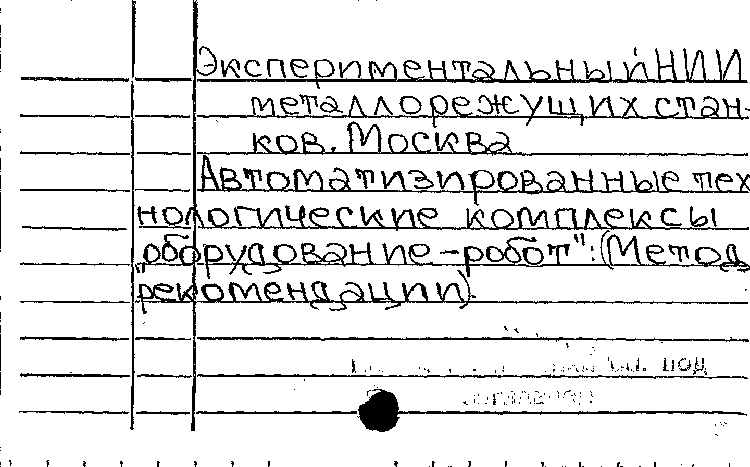 Экспериментальный НИИ
металлорежущих стан-
ков. Москва
Автоматизированные тех
нологические комплексы
"оборудование-робот": (Метод
рекомендации).
под